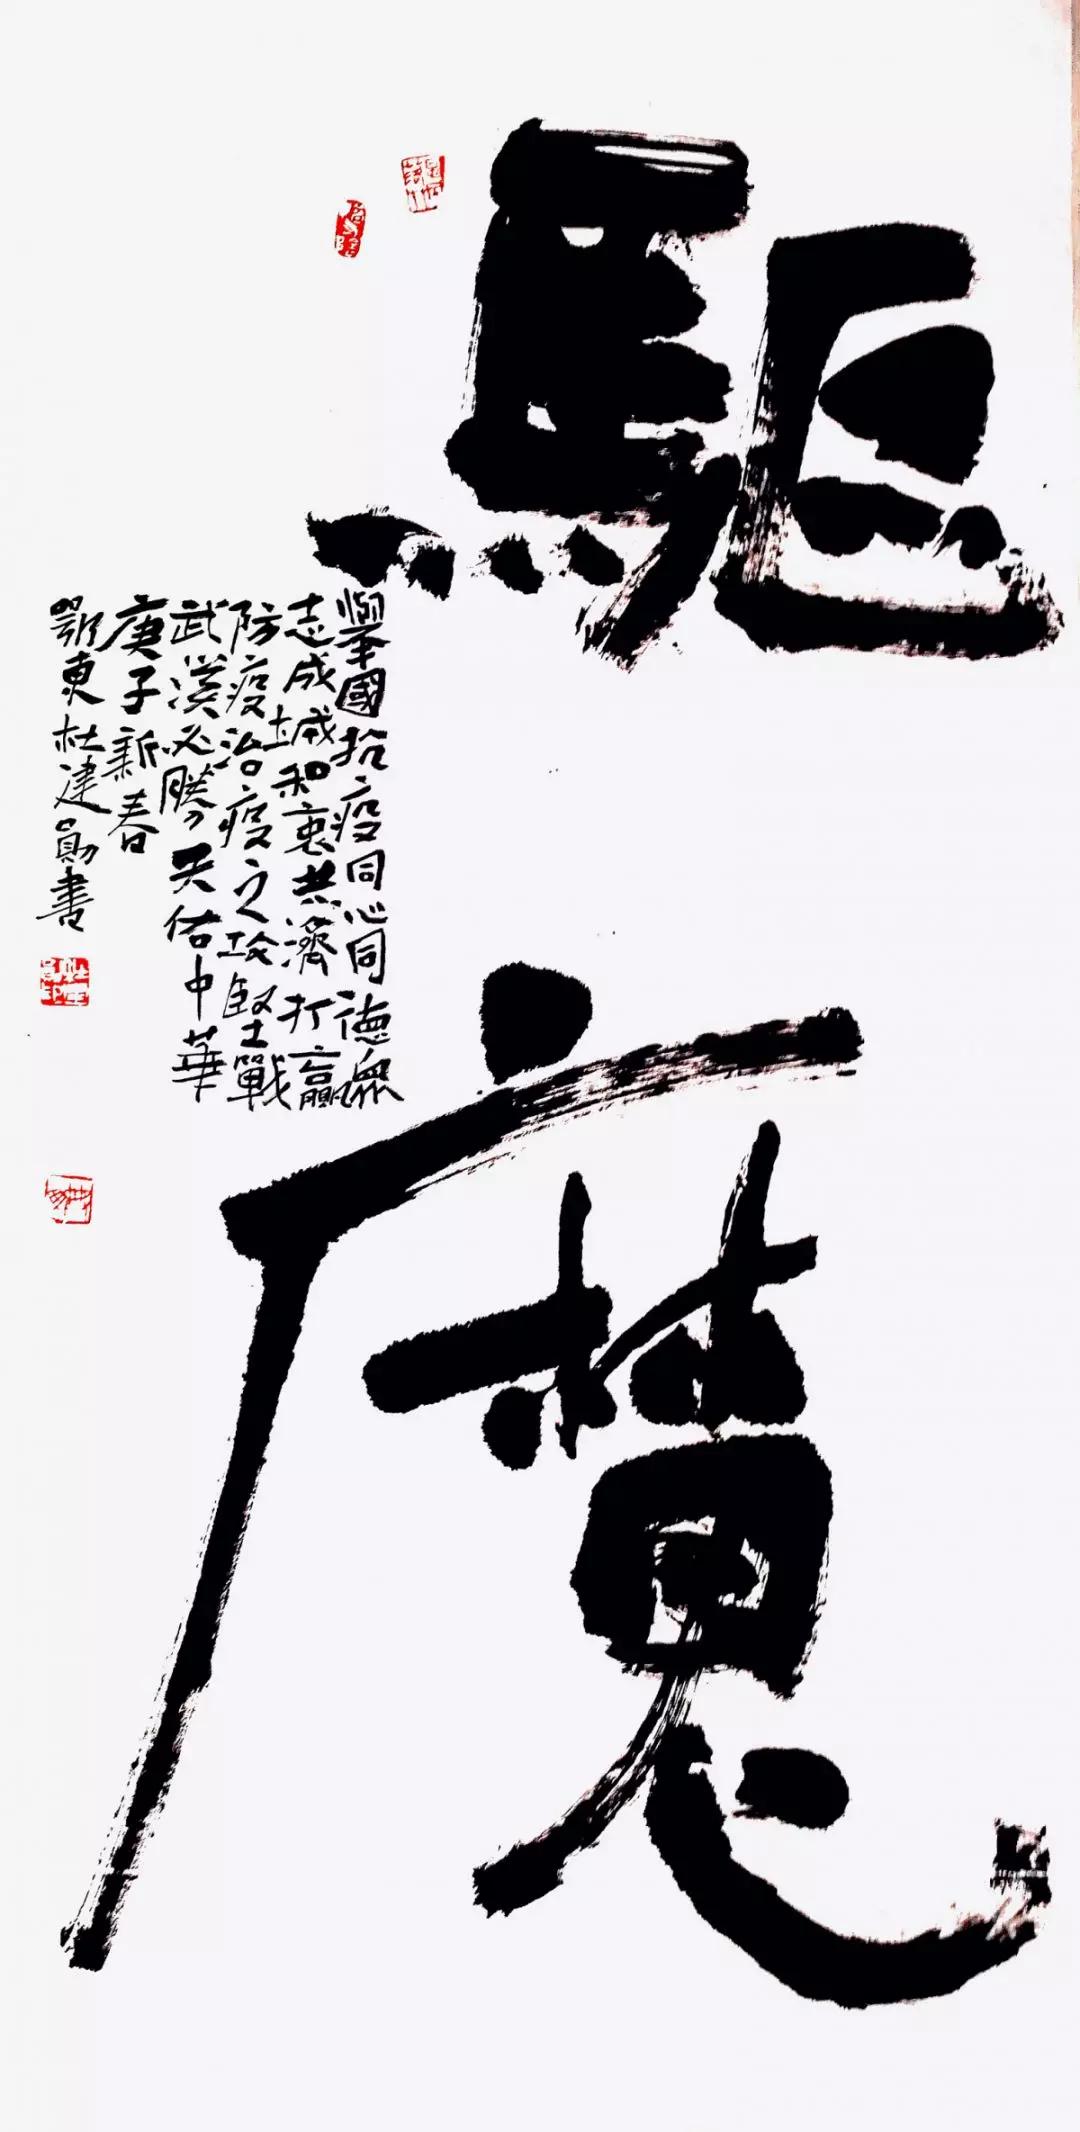 驅魔
舉國抗疫同心同德衆
志成城和衷共濟打贏
防疫治疫之攻堅戰
武漢必勝天佑中華
庚子新春
鄂東杜建勛書